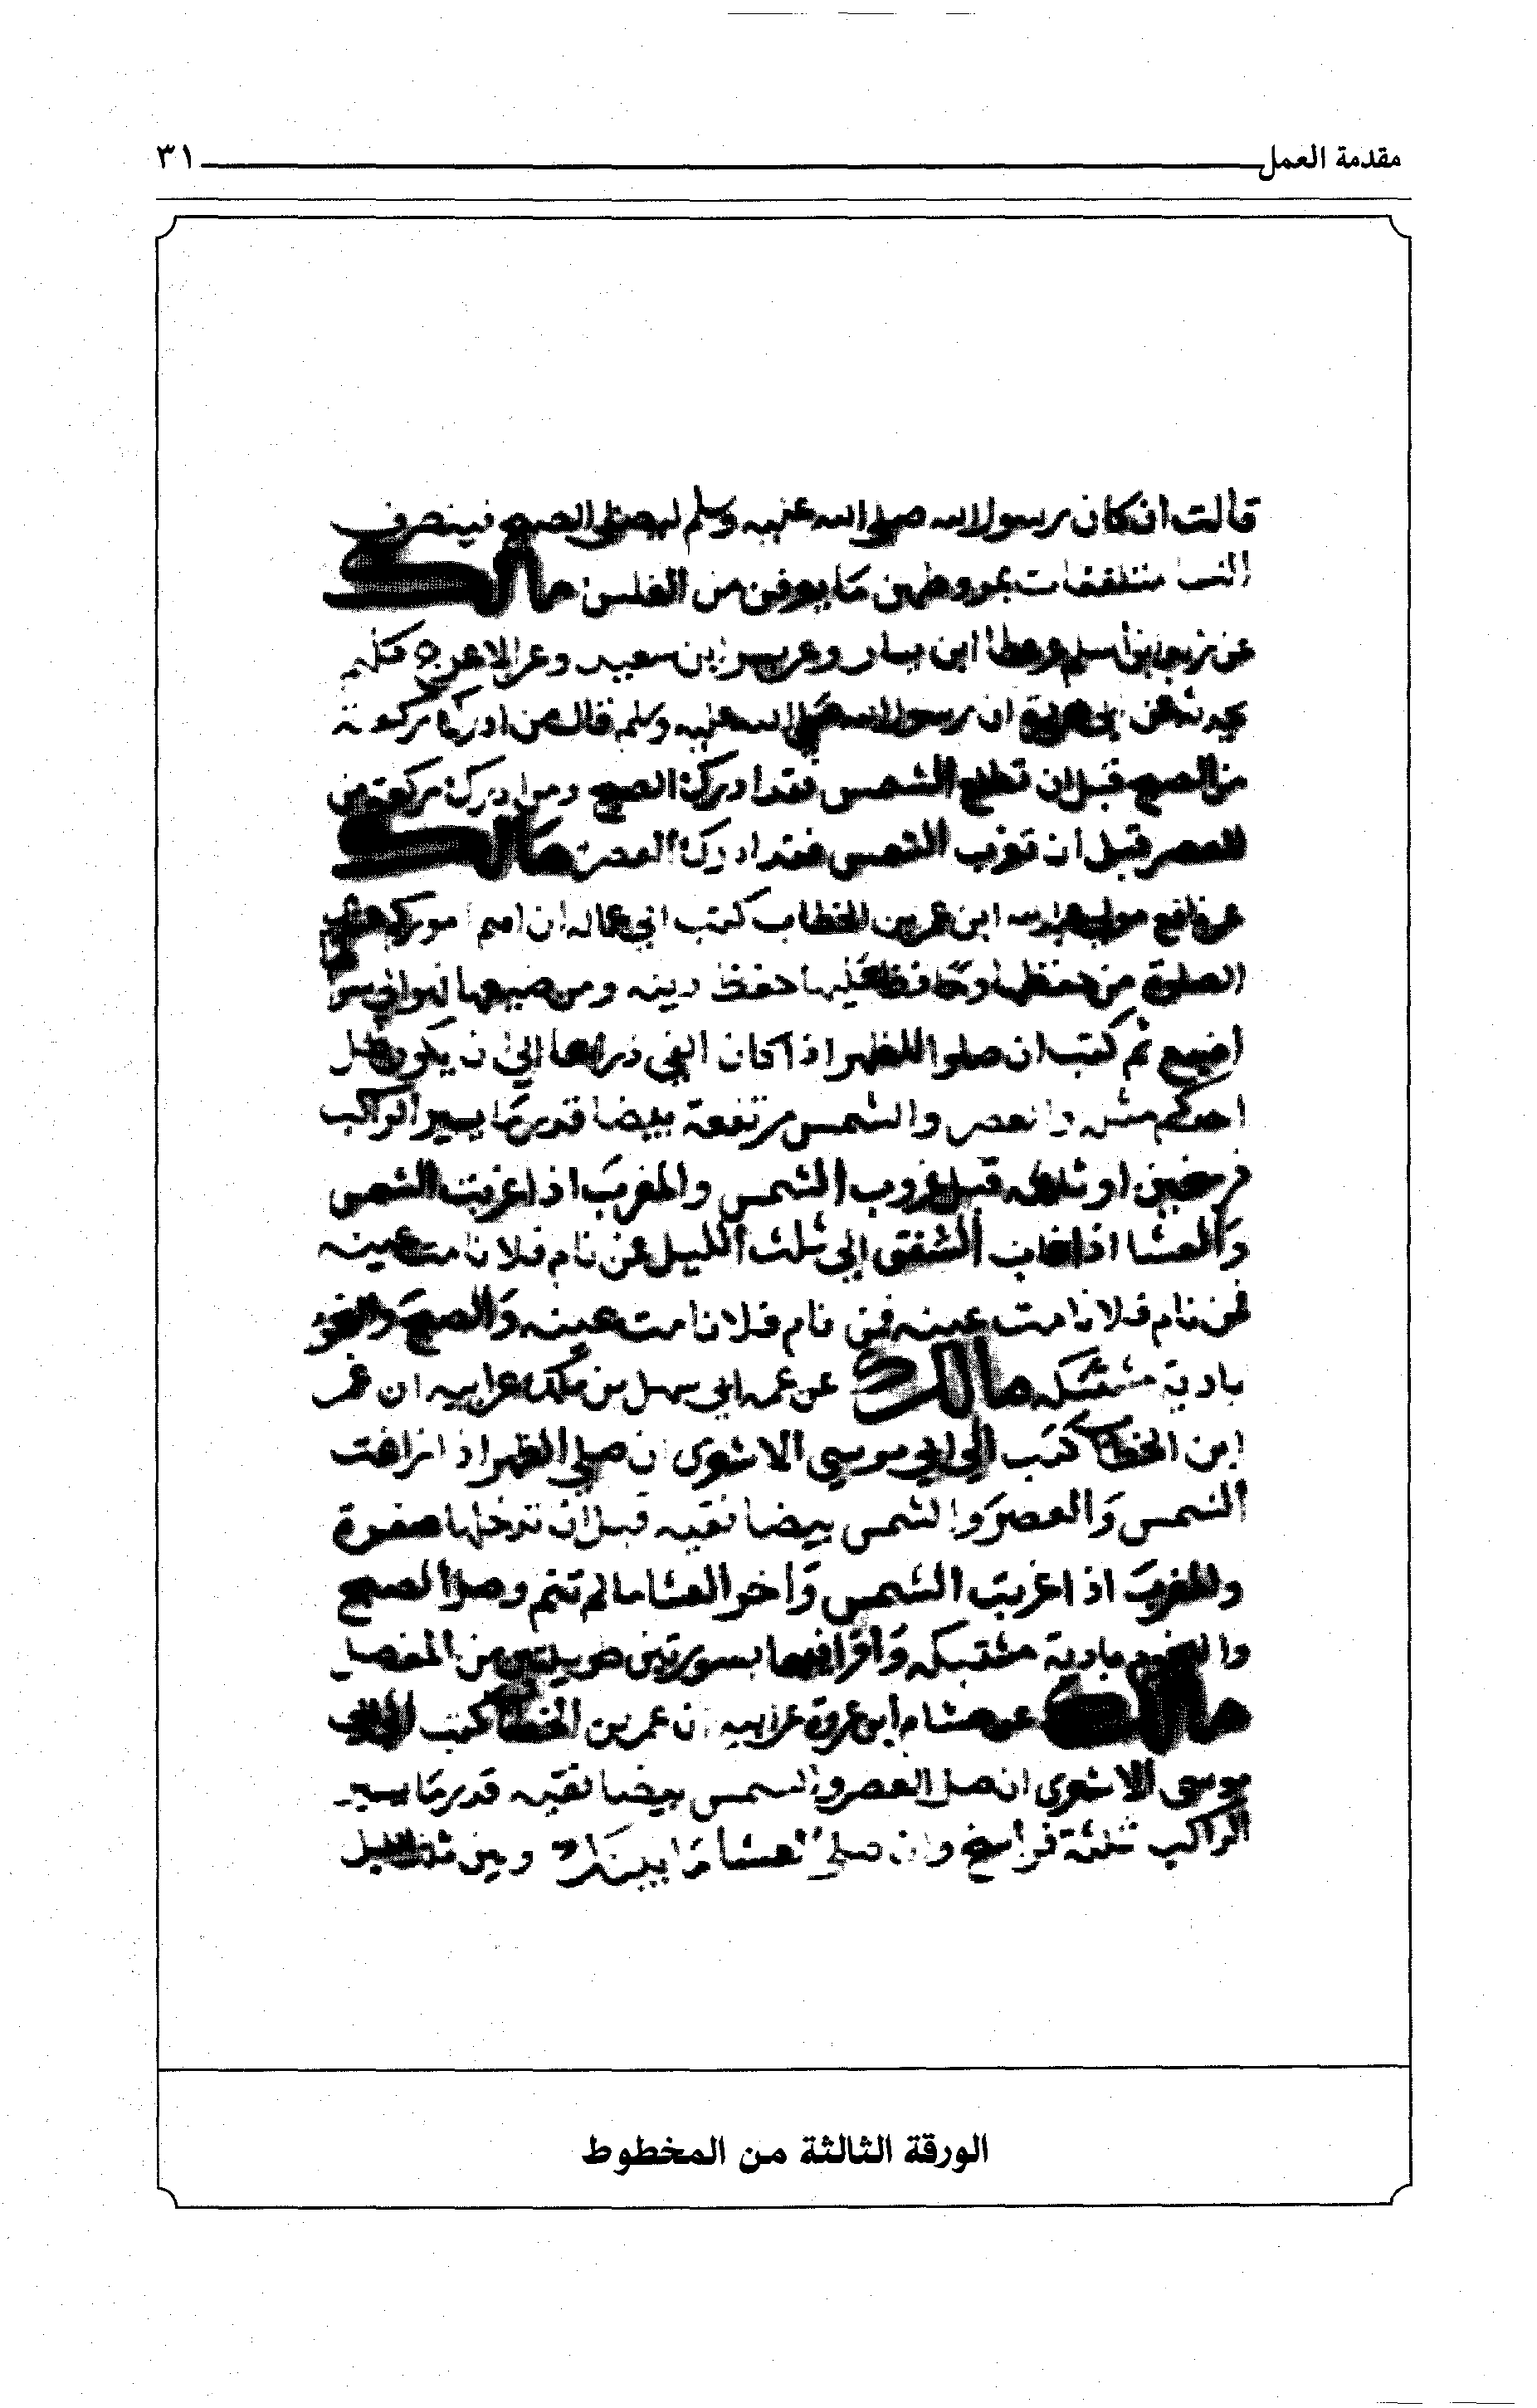 مقدمة العمل ٣١
قالت ان كان رسول الله صلى الله عليه وسلم ليصلي الصبح فينصرف
النسا متلففات بمروطهن مَا يعرفن من الغلس مالك
عن زيد ابن أسلم عن عطا ابن يسار وعن بسر ابن سعيد وعن الاعرج كلهم
يحدثه عن ان رسول الله صلى الله عليه وسلم قال من ادرك ركعة
من الصبح قبل ان تطلع الشمس فقد ادرك الصبح ومن ادرك ركعة من
العصر قبل ان تغرب الشمس فقد ادرك العصر مَالك
عن نافع مولى عبد الله ابن عمر بن الخطاب كتب الى عماله ان اهم اموركم عندي
الصلوة من حفظها وحَافظ عَليها حفظ دينه ومن ضيعها لهو لما سواها
أضيع ثم كتب ان صلوا الظهر اذا كان الفي ذراعا الى ان يكون ظل
احدكم مثله والعصر والشمس مرتفعة بيضا قدر مَا يسير الراكب
فرسخين او ثلثه قبل غروب الشمس والمغرب اذا غربت الشمس
وَالعشا اذا غاب الشفق الى ثلث الليل فمن نام فلا نامت عينه
فمن نام فلا نامت عينه فمن نام فلا نامت عينه وَالصبحَ والنجوم
بادية مشتبكه مالك عن عمه ابي سهل بن مَلك عن ابيه ان عمر
ابن الخطاب كتب الى ابي موسى الاشعرى ان صلى الظهر اذا زاغت
الشمس وَالعصرَ والشمس بيضا نقيه قبل ان تدخلها صفرة
والمغربَ اذا غربت الشمس وَاخر العشا مالم تنم وصل الصبح
والنجوم بادية مشتبكه وَاقرا فيها بسورتين طويلتين من المفصل
مالك عن هشام ابن عروة عن ابيه ان عمر بن الخطاب كتب الى ابي
موسى الاشعرى ان صل العصر والشمس بيضا نقيه قدر مَا يسير
الراكب ثلثة فراسخ وان صلى العشا مَا بينك وبين ثلث الليل
الورقة الثالثة من المخطوط